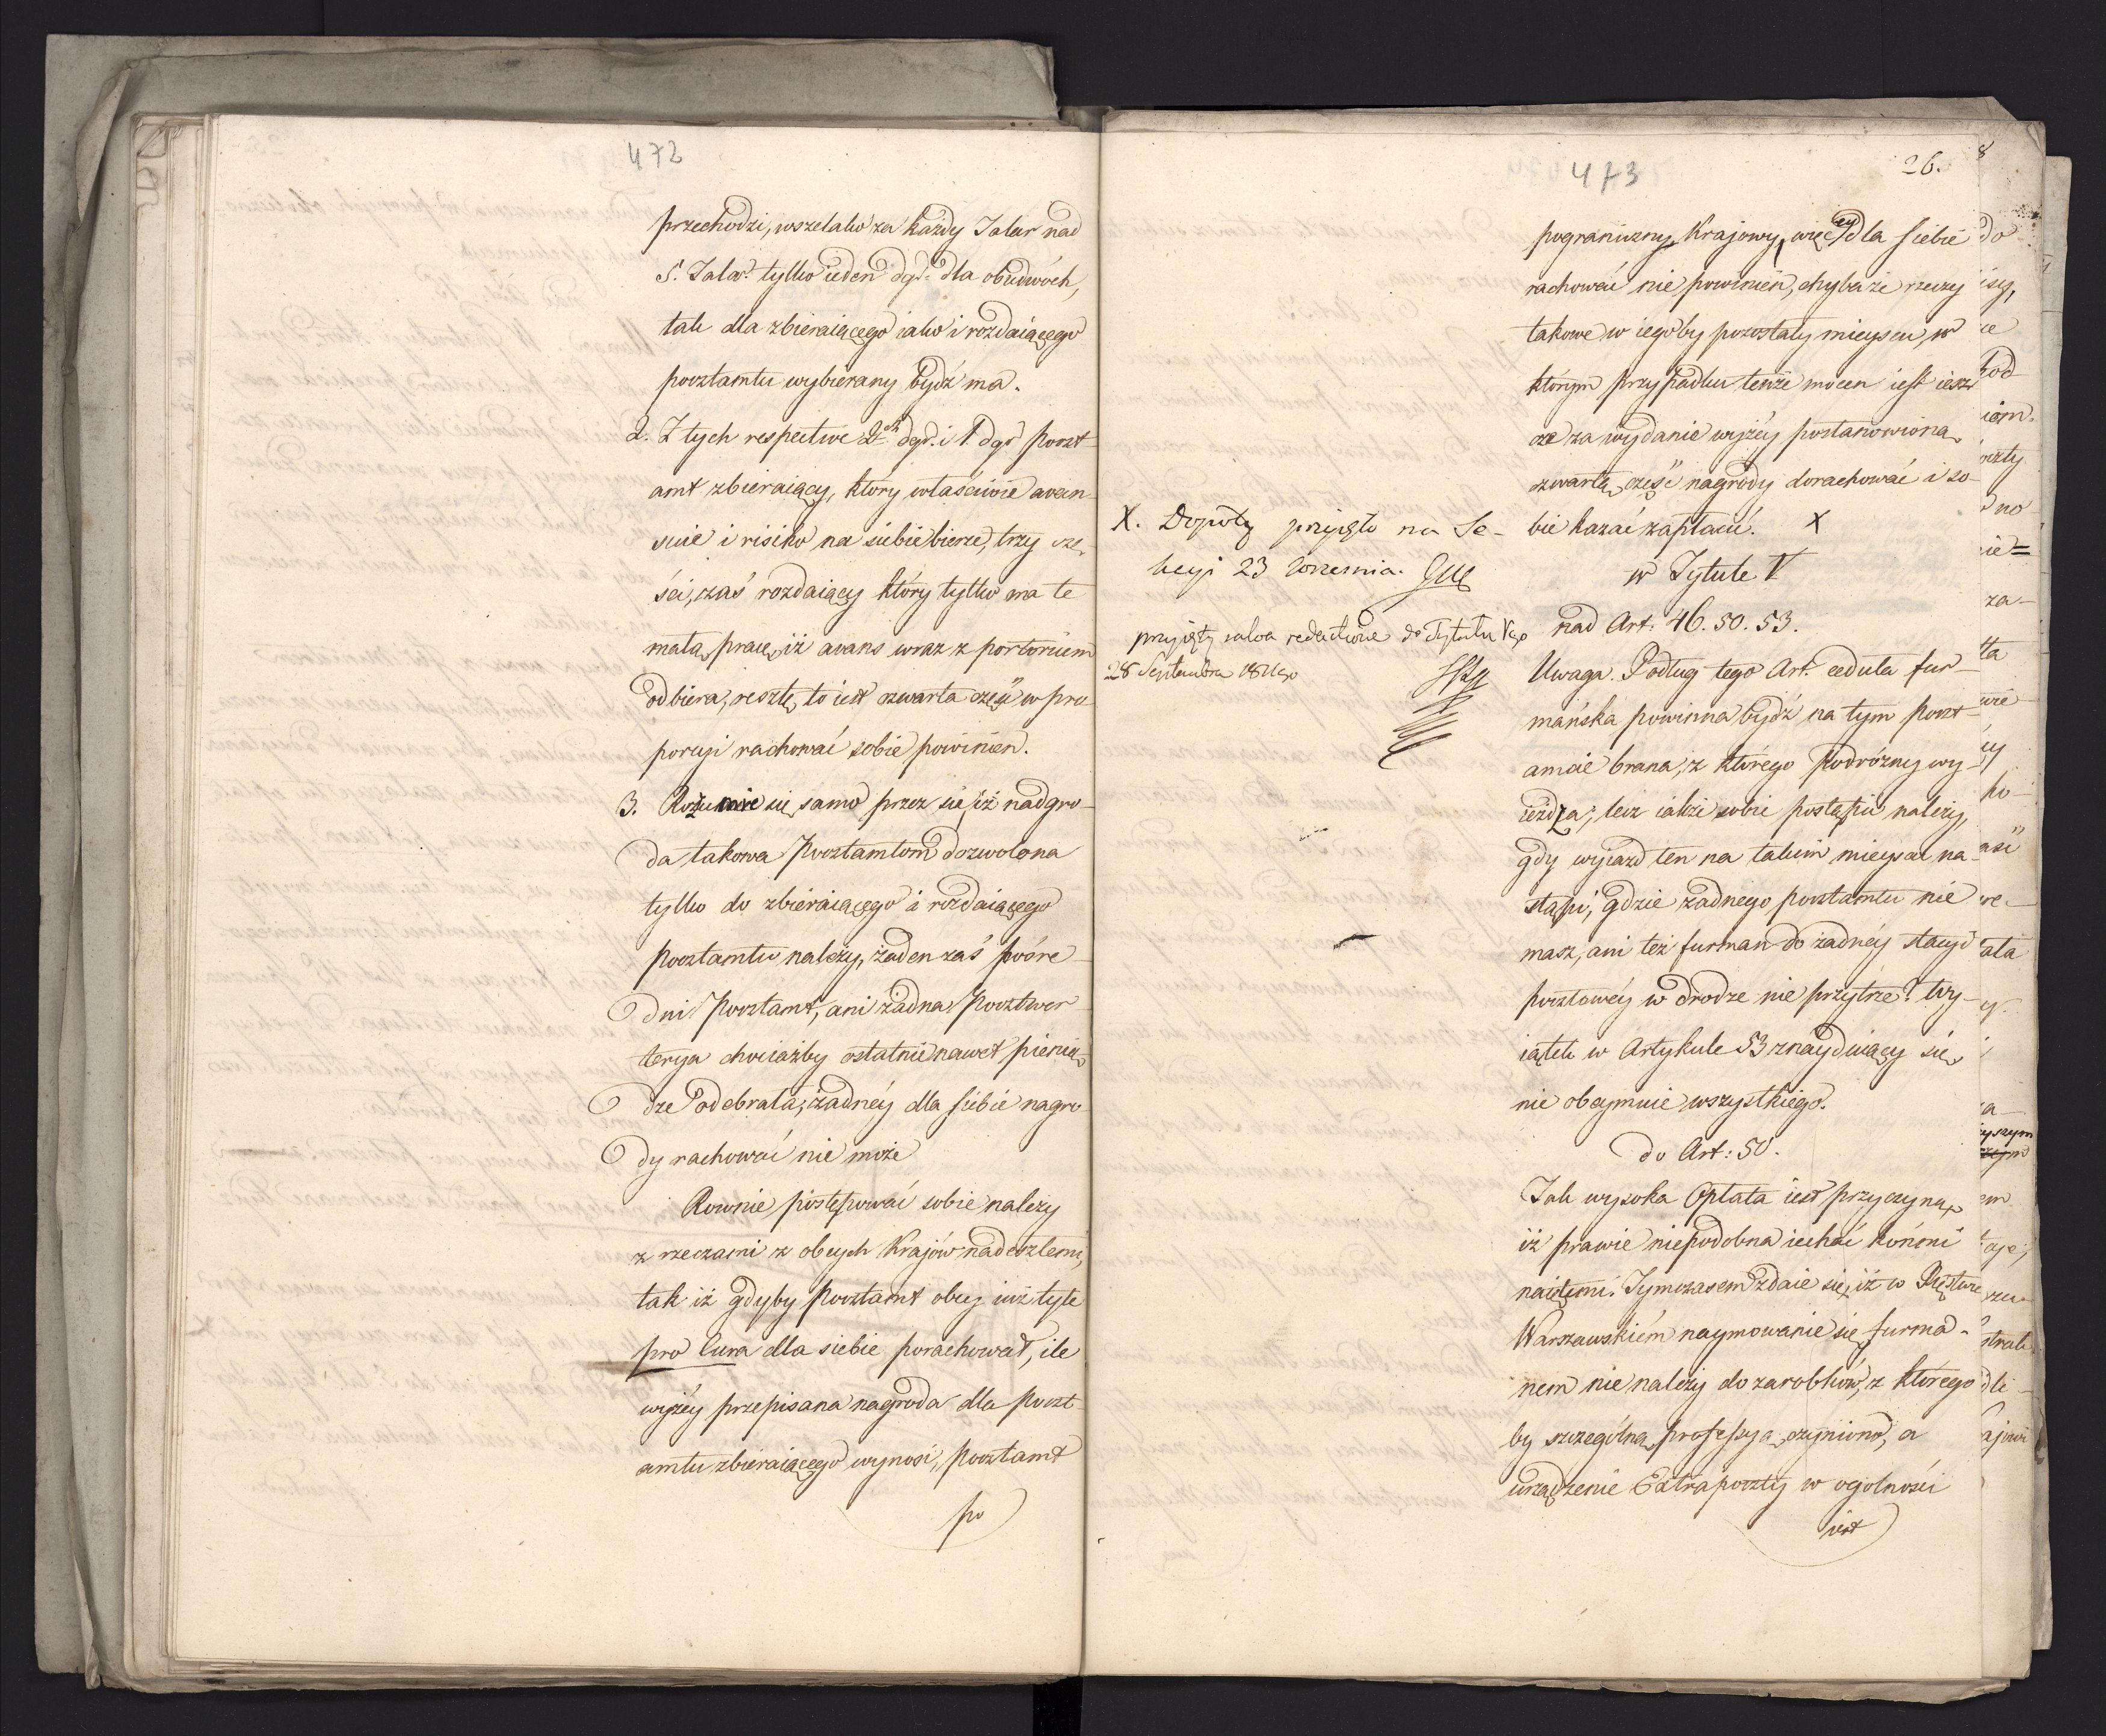 472
przechodzi, wszelako za każdy Talar nad
5. Talar: tylko ieden dgr. dla obudwóch,
tak dla zbieraiącego iako i rozdaiącego
pocztamtu wybierany bydź ma.
2. Z tych respective 2ch dgr. i 1 dgr poczt-
amt zbieraiący, który właściwie avan-
suie i risiko na siebie bierze, trzy czę-
ści, zaś rozdaiący który tylko ma tę
małą pracę, iż avans wraz z portorium
odbiera, resztę, to iest czwartą część w pro-
porcyi rachować sobie powinien.
3. Rozumie się samo przez się, iż nadgro-
da takowa Pocztamtom dozwolona
tylko do zbieraiącego i rozdaiącego
pocztamtu należy, żaden zaś póśre-
dni Pocztamt, ani żadna Pocztwar-
terya chociażby ostatnie nawet pienią-
dze odebrała, żadnéy dla siebie nagro-
dy rachować nie może
Rownie postępować sobie należy
z rzeczami z obcych Krajów nadeszłemi,
tak iż gdyby Pocztamt obcy iuż tyle
pro cura dla siebie porachował, ile
wyżéy przepisana nagroda dla Poczt-
amtu zbieraiącego wynosi, Pocztamt
po
473
26.
pograniczny Krajowy więcey dla siebie
rachować nie powinien, chyba że rzeczy
takowe w iegoby pozostały mieyscu, w
którym przypadku tenże mocen iest iesz-
cze za wydanie wyżéy postanowioną
czwartą część nagrody dorachować i so-
bie kazać zapłacić. X
X. Dopóty przyięto na Se-
ssyi 23 Września.
w Tytule V
nad Art. 46. 50. 53.
przyięty salva redactione do Tytułu Vgo
28 Septembra
Uwaga. Podług tego Art. cedula fur-
mańska powinna bydź na tym poczt-
amcie brana, z którego Podróżny wy-
ieżdża; lecz iakże sobie postąpić należy,
gdy wyiazd ten na takim mieyscu na-
stąpi, gdzie żadnego pocztamtu nie
masz, ani też furman do żadnéy stacyi
pocztowéy w drodze nie przytrze? Wy-
iątek w Artykule 53 znayduiący się,
nie obeymuie wszystkiego.
do Art: 50.
Tak wysoka Opłata iest przyczyną,
iż prawie niepodobna iechać końmi
naiętemi. Tymczasem zdaie się, iż w Xięstwie
Warszawskiém naymowanie się furma-
nem nie należy do zarobków, z którego
by szczególną professyą czyniono, a
urządzenie Extrapoczty w ogólności
iest